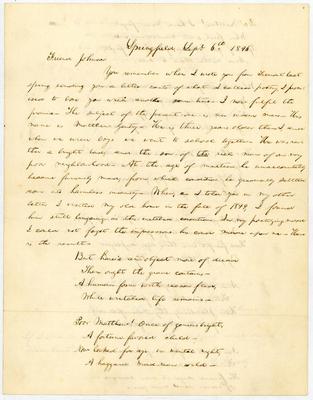 Springfield, Sept. 6th 1846
Friend Johnson
You remember when I wrote you from Tremont last
spring, sending you a little canto of what I called poetry, I prom
ised to bore you with another some time. I now fulfil the
promise. The subject of the present one is an insane man. His
name is Matthew Gentry. He is three years older than I, and
when we were boys we went to school together. He was rath-
er a bright lad, and the son of the rich man of our very
poor neighbourhood. At the age of nineteen he unaccountably
became furiously mad, from which condition he gradually settled
down into harmless insanity. When, as I told you in my other
letter I visited my old home in the fall of 1844, I found
him still lingering in this wretched condition. In my poetizing mood
I could not forget the impressions his case made upon me. Here
is the result—
But here's an object more of dread
Than ought the grave contains—
A human form with reason fled,
While wretched life remains—
Poor Matthew! Once of genius bright,
A fortune-favored child—
Now locked for aye, in mental night,
A haggard mad-man wild—